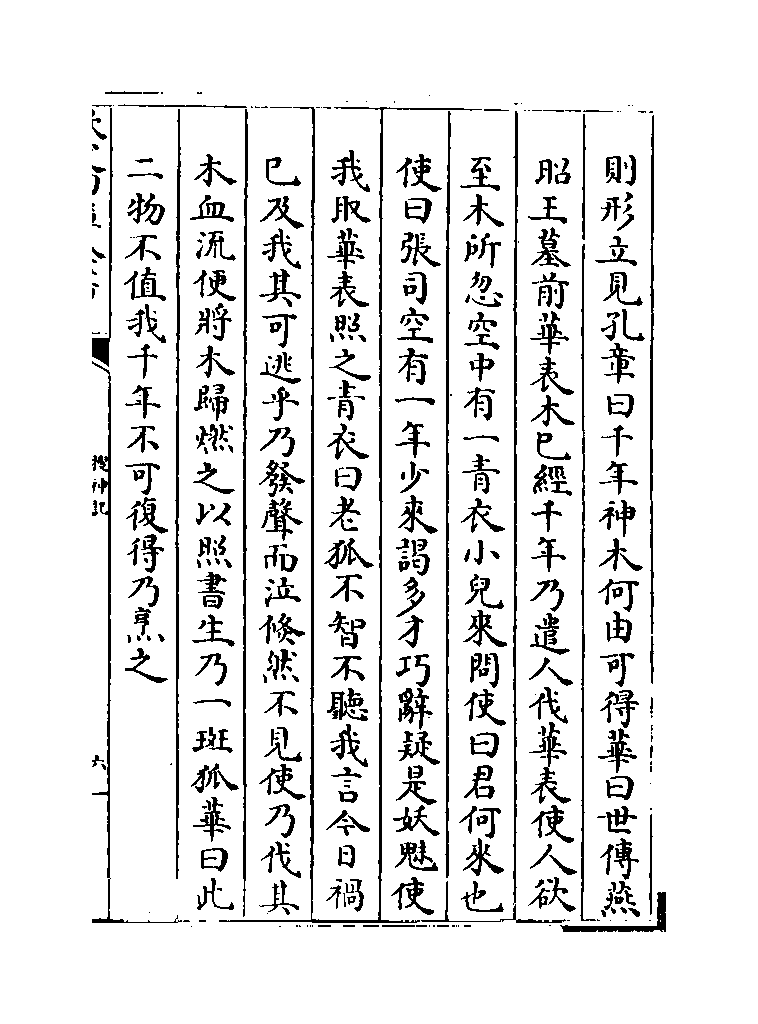 則形立見孔章曰千年神木何由可得華曰世傳燕
昭王墓前華表木已經千年乃遣人伐華表使人欲
至木所忽空中有一青衣小兒來問使曰君何來也
使曰張司空有一年少來謁多才巧辭疑是妖魅使
我取華表照之青衣曰老狐不智不聽我言今日禍
已及我其可逃乎乃發聲而泣倐然不見使乃伐其
木血流便將木歸燃之以照書生乃一斑狐華曰此
二物不值我千年不可復得乃烹之
搜神記
六